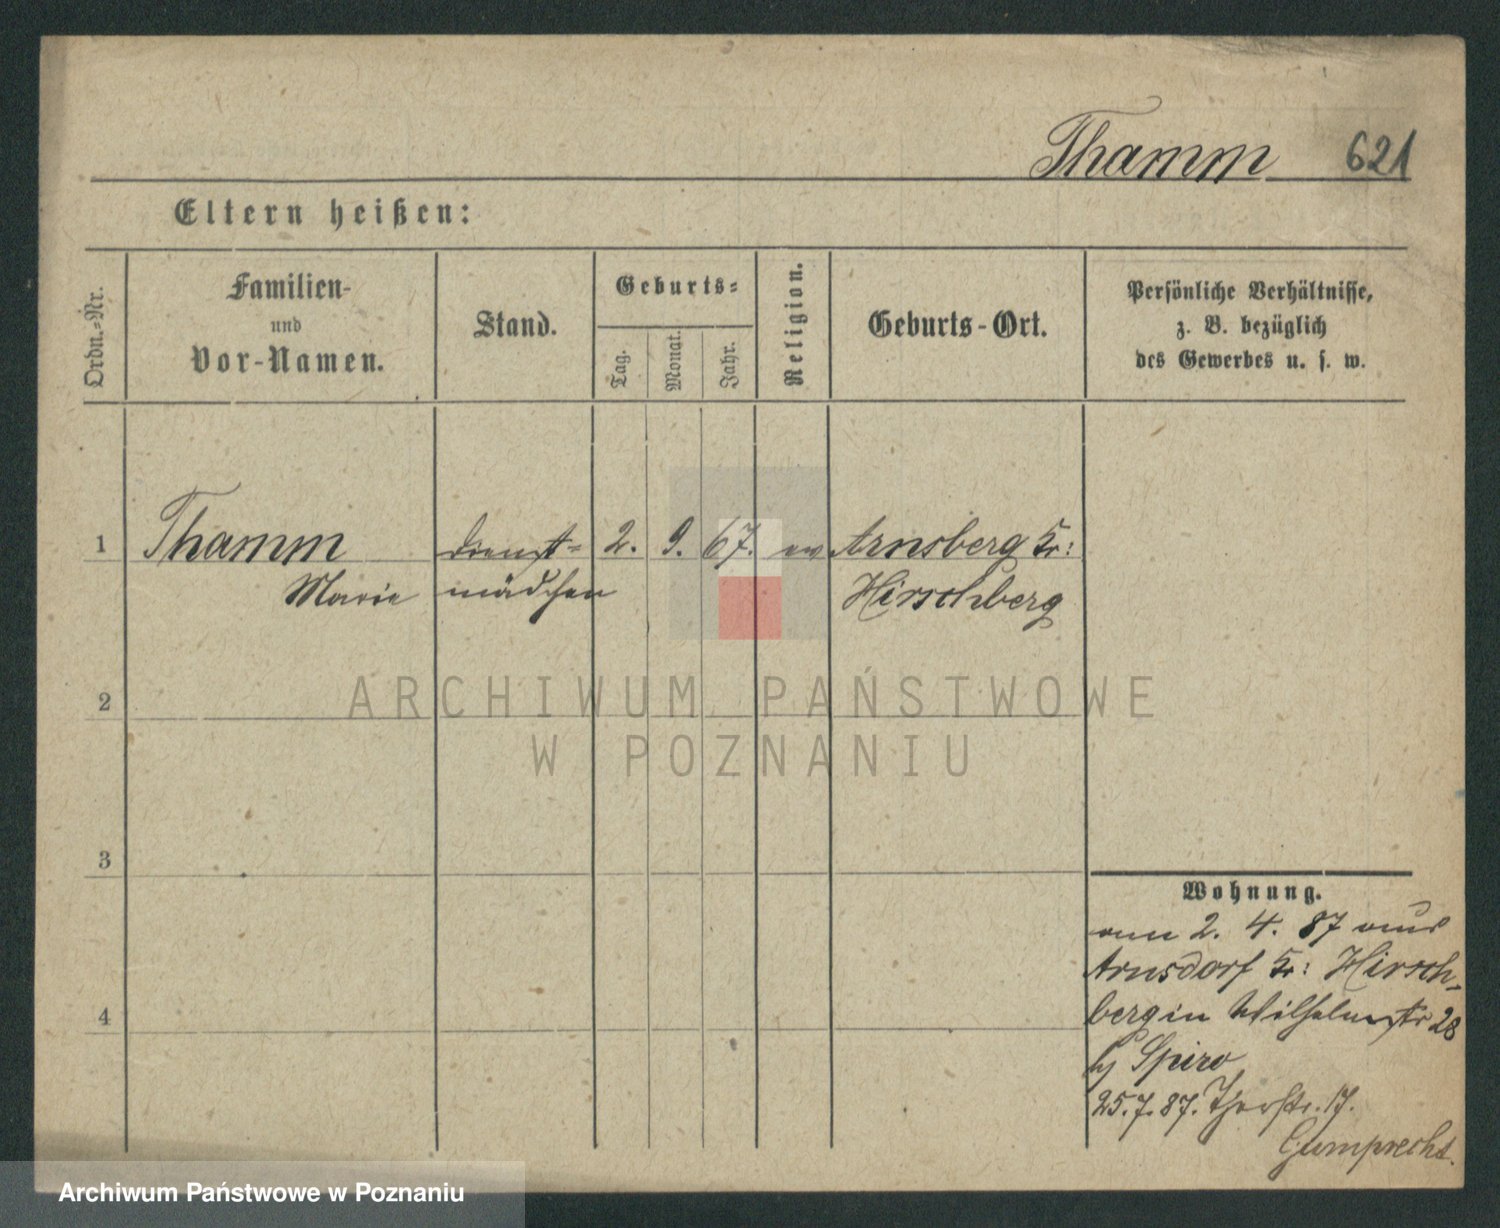 Thamm 621
Eltern heißen:
Ordn.-Nr.
Familien-
und
Vor-Namen.
Stand.
Geburts-
Tag.
Monat.
Jahr.
Religion.
Geburts-Ort.
Persönliche Verhältnisse,
z. B. bezüglich
des Gewerbes u. s. w.
1 Thamm Dienst- 2. 9. 67. ev Arnsberg Kr:
Marie mädchen Hirschberg
2
3
4
Wohnung.
am 2. 4. 87 aus
Arnsdorf Kr: Hirsch-
berg in Wilhelmstr 28
by Spiro
25. 7. 87. 17.
Gumprecht.
ARCHIWUM PAŃSTWOWE
W POZNANIU
Archiwum Państwowe w Poznaniu